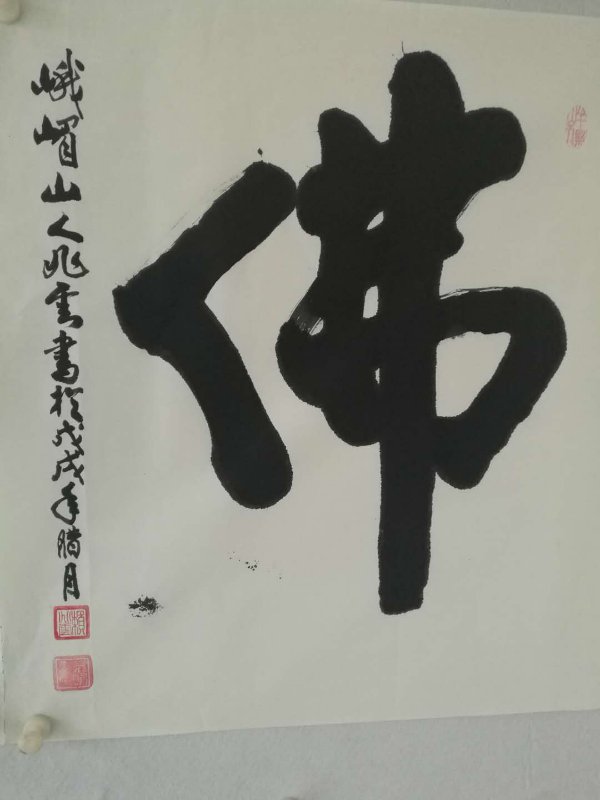 佛
峨嵋山人兆雲書於戊戌年腊月